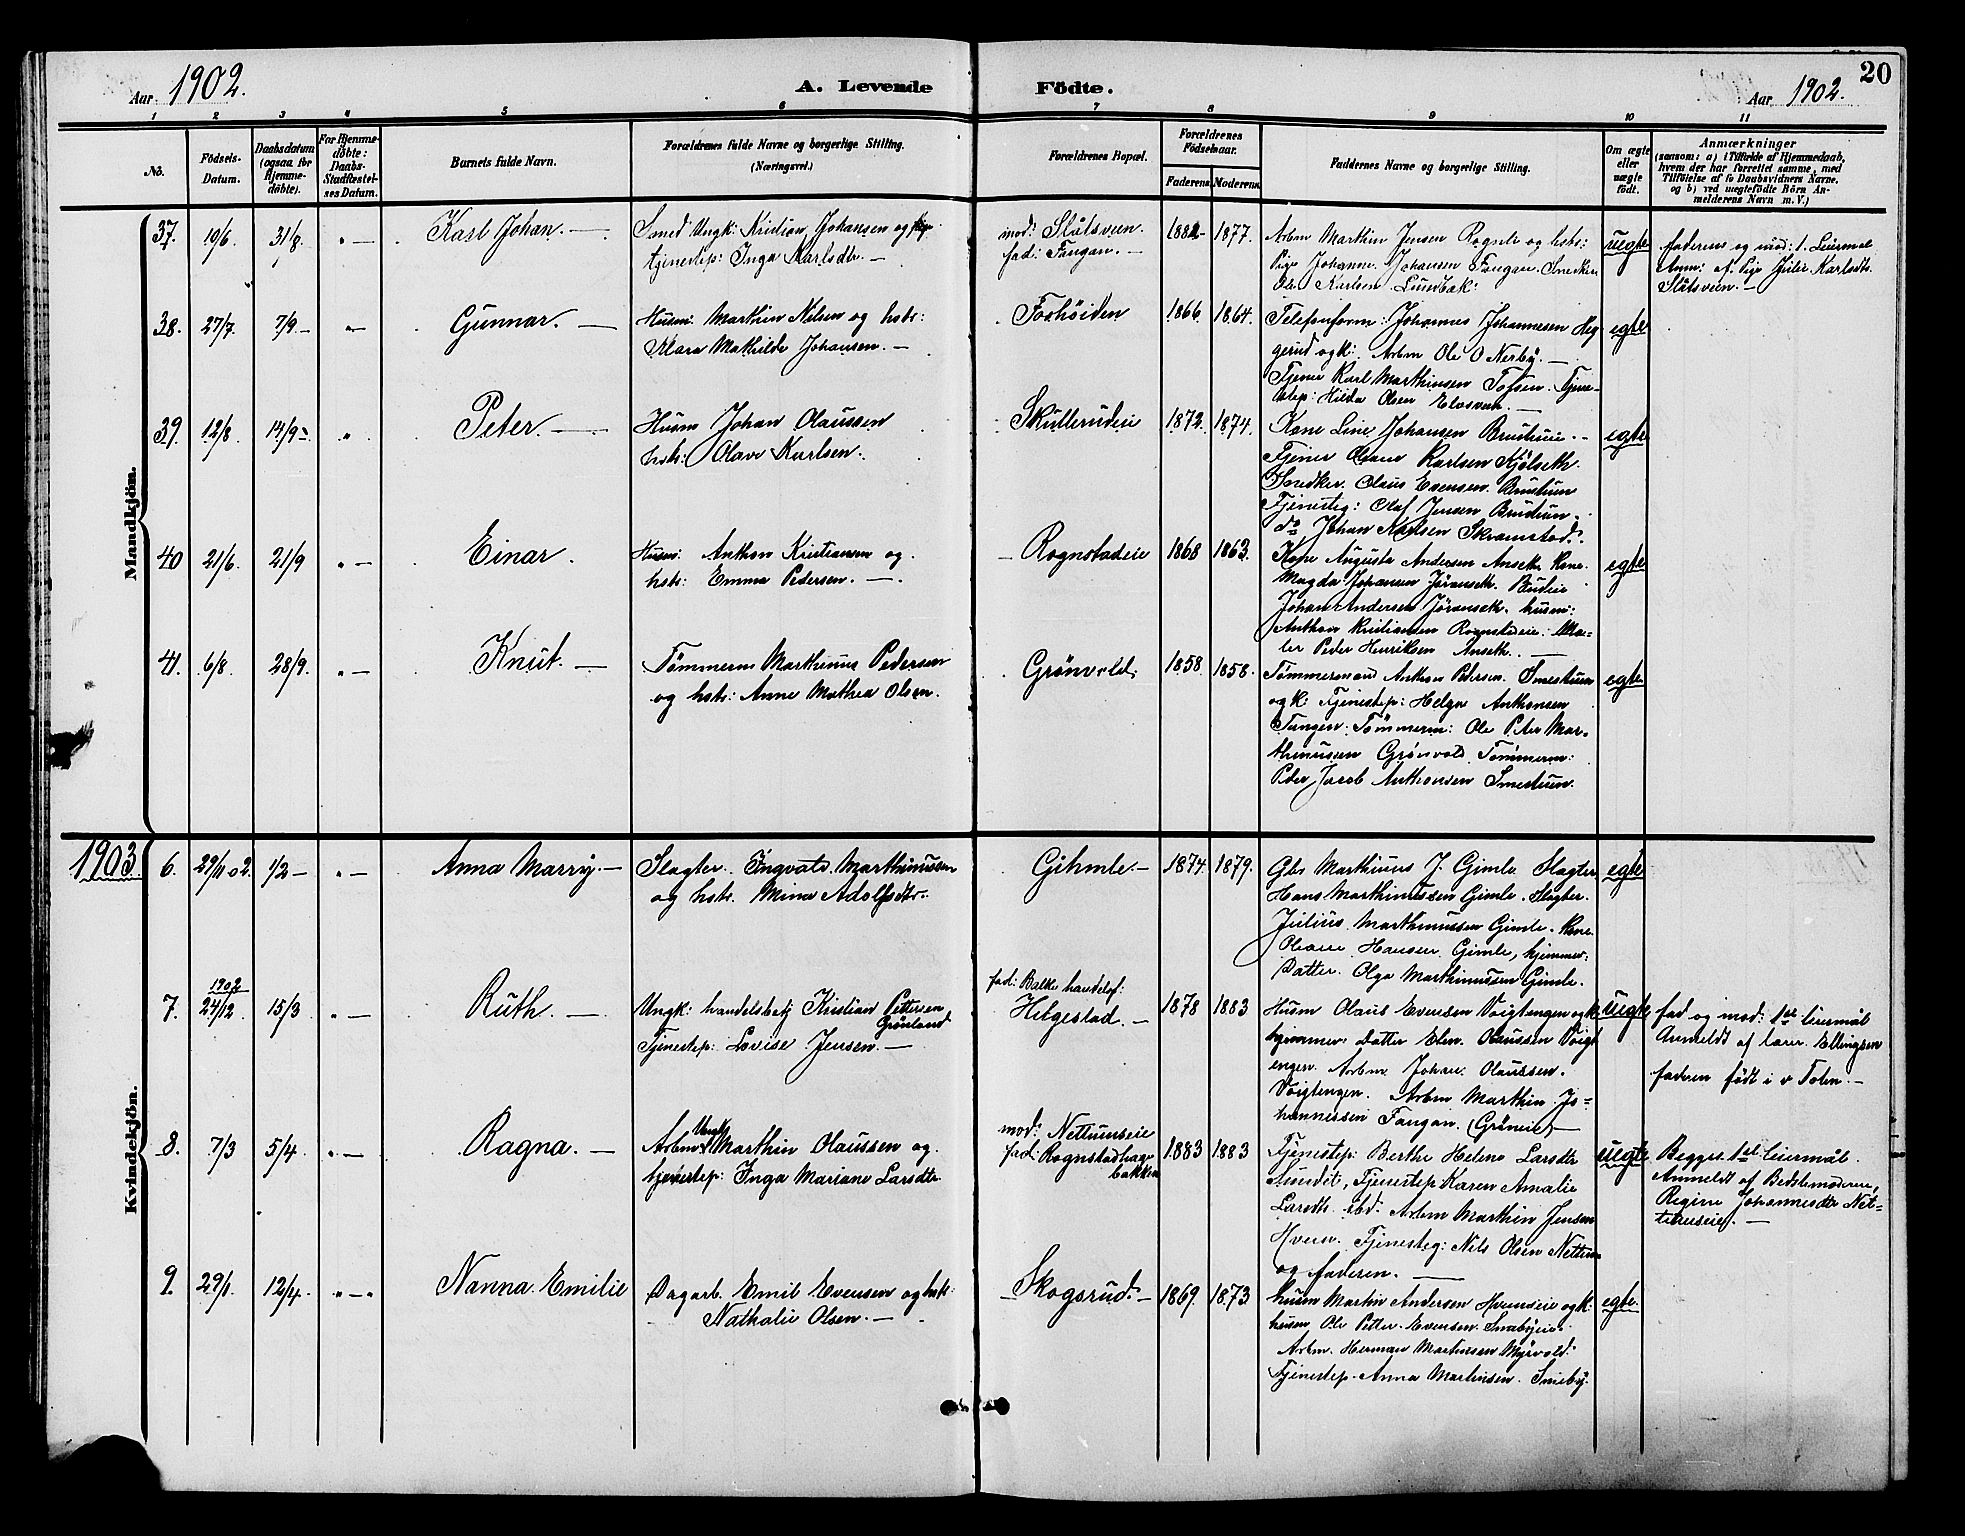 Aar 1902.
A. Levende Födte.
Aar 1902.
20
1 2 3 4 5 6 7 8 9 10 11
No.
Födsels-Datum.
Daabsdatum (ogsaa for Hjemmedöbte).
For Hjemmedöbte: Daabs-Stadfæstelses Datum.
Barnets fulde Navn.
Forældrenes fulde Navne og borgerlige Stilling.
(Næringsvei.)
Forældrenes Bopæl.
Forældrenes Födselsaar.
Faderens Moderens
Faddernes Navne og borgerlige Stilling.
Om ægte eller uægte födt.
Anmærkninger
(saasom: a) i Tilfælde af Hjemmedaab,
hvem der har forrettet samme, med
Tilföielse af to Daabsvidners Navne,
og b) ved uægtefödte Börn An-
melderens Navn m. V.)
Mandkjön.
37. 19/6. 31/8. " — Karl Johan. —
Smed Ungk: Kristian Johansen og
tjenestep: Inga Karlsdtr. —
mod: Slåtsveen.
fad: Fangan. —
1882 1877.
Arbm Marthin Jensen Rognli og hstr:
Pige Johanne Johansen Fangan. Snedker
Ole Karlsen
uegte
faderens og mod: 1. Leiermal
Anm: af Pige Julie Karlsdtr.
Slåtsveen. —
38. 27/7. 7/9. — " — Gunnar. —
Husm: Marthin Nilsen og hstr:
Klara Mathilde Johansen. —
Foshöiden
1866. 1864.
Telefonform: Johannes Johannesen Heg
gerud og k: Arbm Ole O Nerby. —
Tjener Karl Marthinsen Tofsen. Tjene-
step: Hilda Olsen Elvsveen. —
egte
39. 12/8 14/9 " Peter. —
Husm Johan Olaussen
hstr: Olave Karlsen.
Skullerudeie
1872. 1874.
Kone Line Johansen Brustueie. -
Tjener Olaus Karlsen Kjölseth.
Snedker. Olaus Evensen. Brustuen
Tjenesteg: Olaf Jensen Brustuen.
do Johan Karlsen Skramstad.
egte
40 21/6. 21/9 " — Einar.
Husm: Anthon Kristiansen og
hstr: Emma Pedersen. —
Rognstadeie
1868 1863.
Kone Augusta Andersen Anseth. Kone
Magda Johansen Jöranseth. Budeie
Johan Andersen Jöranseth. husm:
Anthon Kristiansen Rognstadeie. Ma-
ler Peder Henriksen Anseth. —
egte
41. 6/8 28/9. " — Knut. —
Tömmerm Marthinus Pedersen
og hstr: Anne Mathea Olsen.
Grönvold.
1858. 1858.
Tömmermand Anthon Pedersen. Smestuen
og k: Tjenestep: Helga Anthonsen
Tangen. Tömmerm: Ole Peter Mar-
thinussen Grönvold. Tömmerm:
Peder Jacob Anthonsen Smestuen.
egte
1903
Kvindekjön.
6. 29/11 02. 1/2 — " — Anna Marry. —
Slagter. Ingvald Marthinussen
og hstr. Mina Adolfsdtr.
Gihmle. —
1874 1879.
Gbr Marthinus J. Gimle. Slagter
Hans Marthinussen Gimle. Slagter.
Julius Marthinussen Gimle. Kone
Oleane Hansen Gimle, hjemmev:
Datter. Olga Marthinussen Gimle.
egte
7. 1902 24/12. 15/3 " — Ruth. —
Ungk: handelsbetj Kristian Pettersen
Grönland
Tjenestep: Lovise Jensen. —
fad: Balke handelsf:
Helgestad. —
1878 1883
Husm Olaus Evensen Voigtengen og k
hjemmev: datter Elen Olaussen Voigt
engen. Arbm Johan Olaussen.
Voigtengen. Arbm Marthin Jo-
hannessen Fangan. (Gröneie) —
uegte
fad og mod: 1ste leiermål
Anmeldt af lærer Ellingsen
faderen födt i v Toten. —
8. 7/3 5/4 " — Ragna. —
Arbm Ungk Marthin Olaussen og
tjenestep: Inga Mariane Larsdtr
mod: Nettumseie
fad: Rognstadhage
bakken
1883 1883
Tjenestep: Berthe Helene Larsdtr
Sundet, Tjenestep Karen Amalie
Larsdtr. ibd. Arbm Marthin Jensen
Tjenesteg: Nils Olsen Nettum
og Faderen. —
uegte
Begges 1ste leiermål.
Anmeldt af Bedstemoderen,
Regine Johannesdtr Net-
tumseie. —
9. 29/1. 12/4. " — " Nanna Emilie
Dagarb. Emil Evensen og hstr:
Nathalie Olsen. —
Skogsrud. —
1869. 1873
husm Martin Andersen Hvemseie og k:
husm Ole Petter Evensen Smebyeie.
Arbm. Herman Martinsen Myrvold.
Tjenestep. Anna Martinsen. Smeby.
egte.